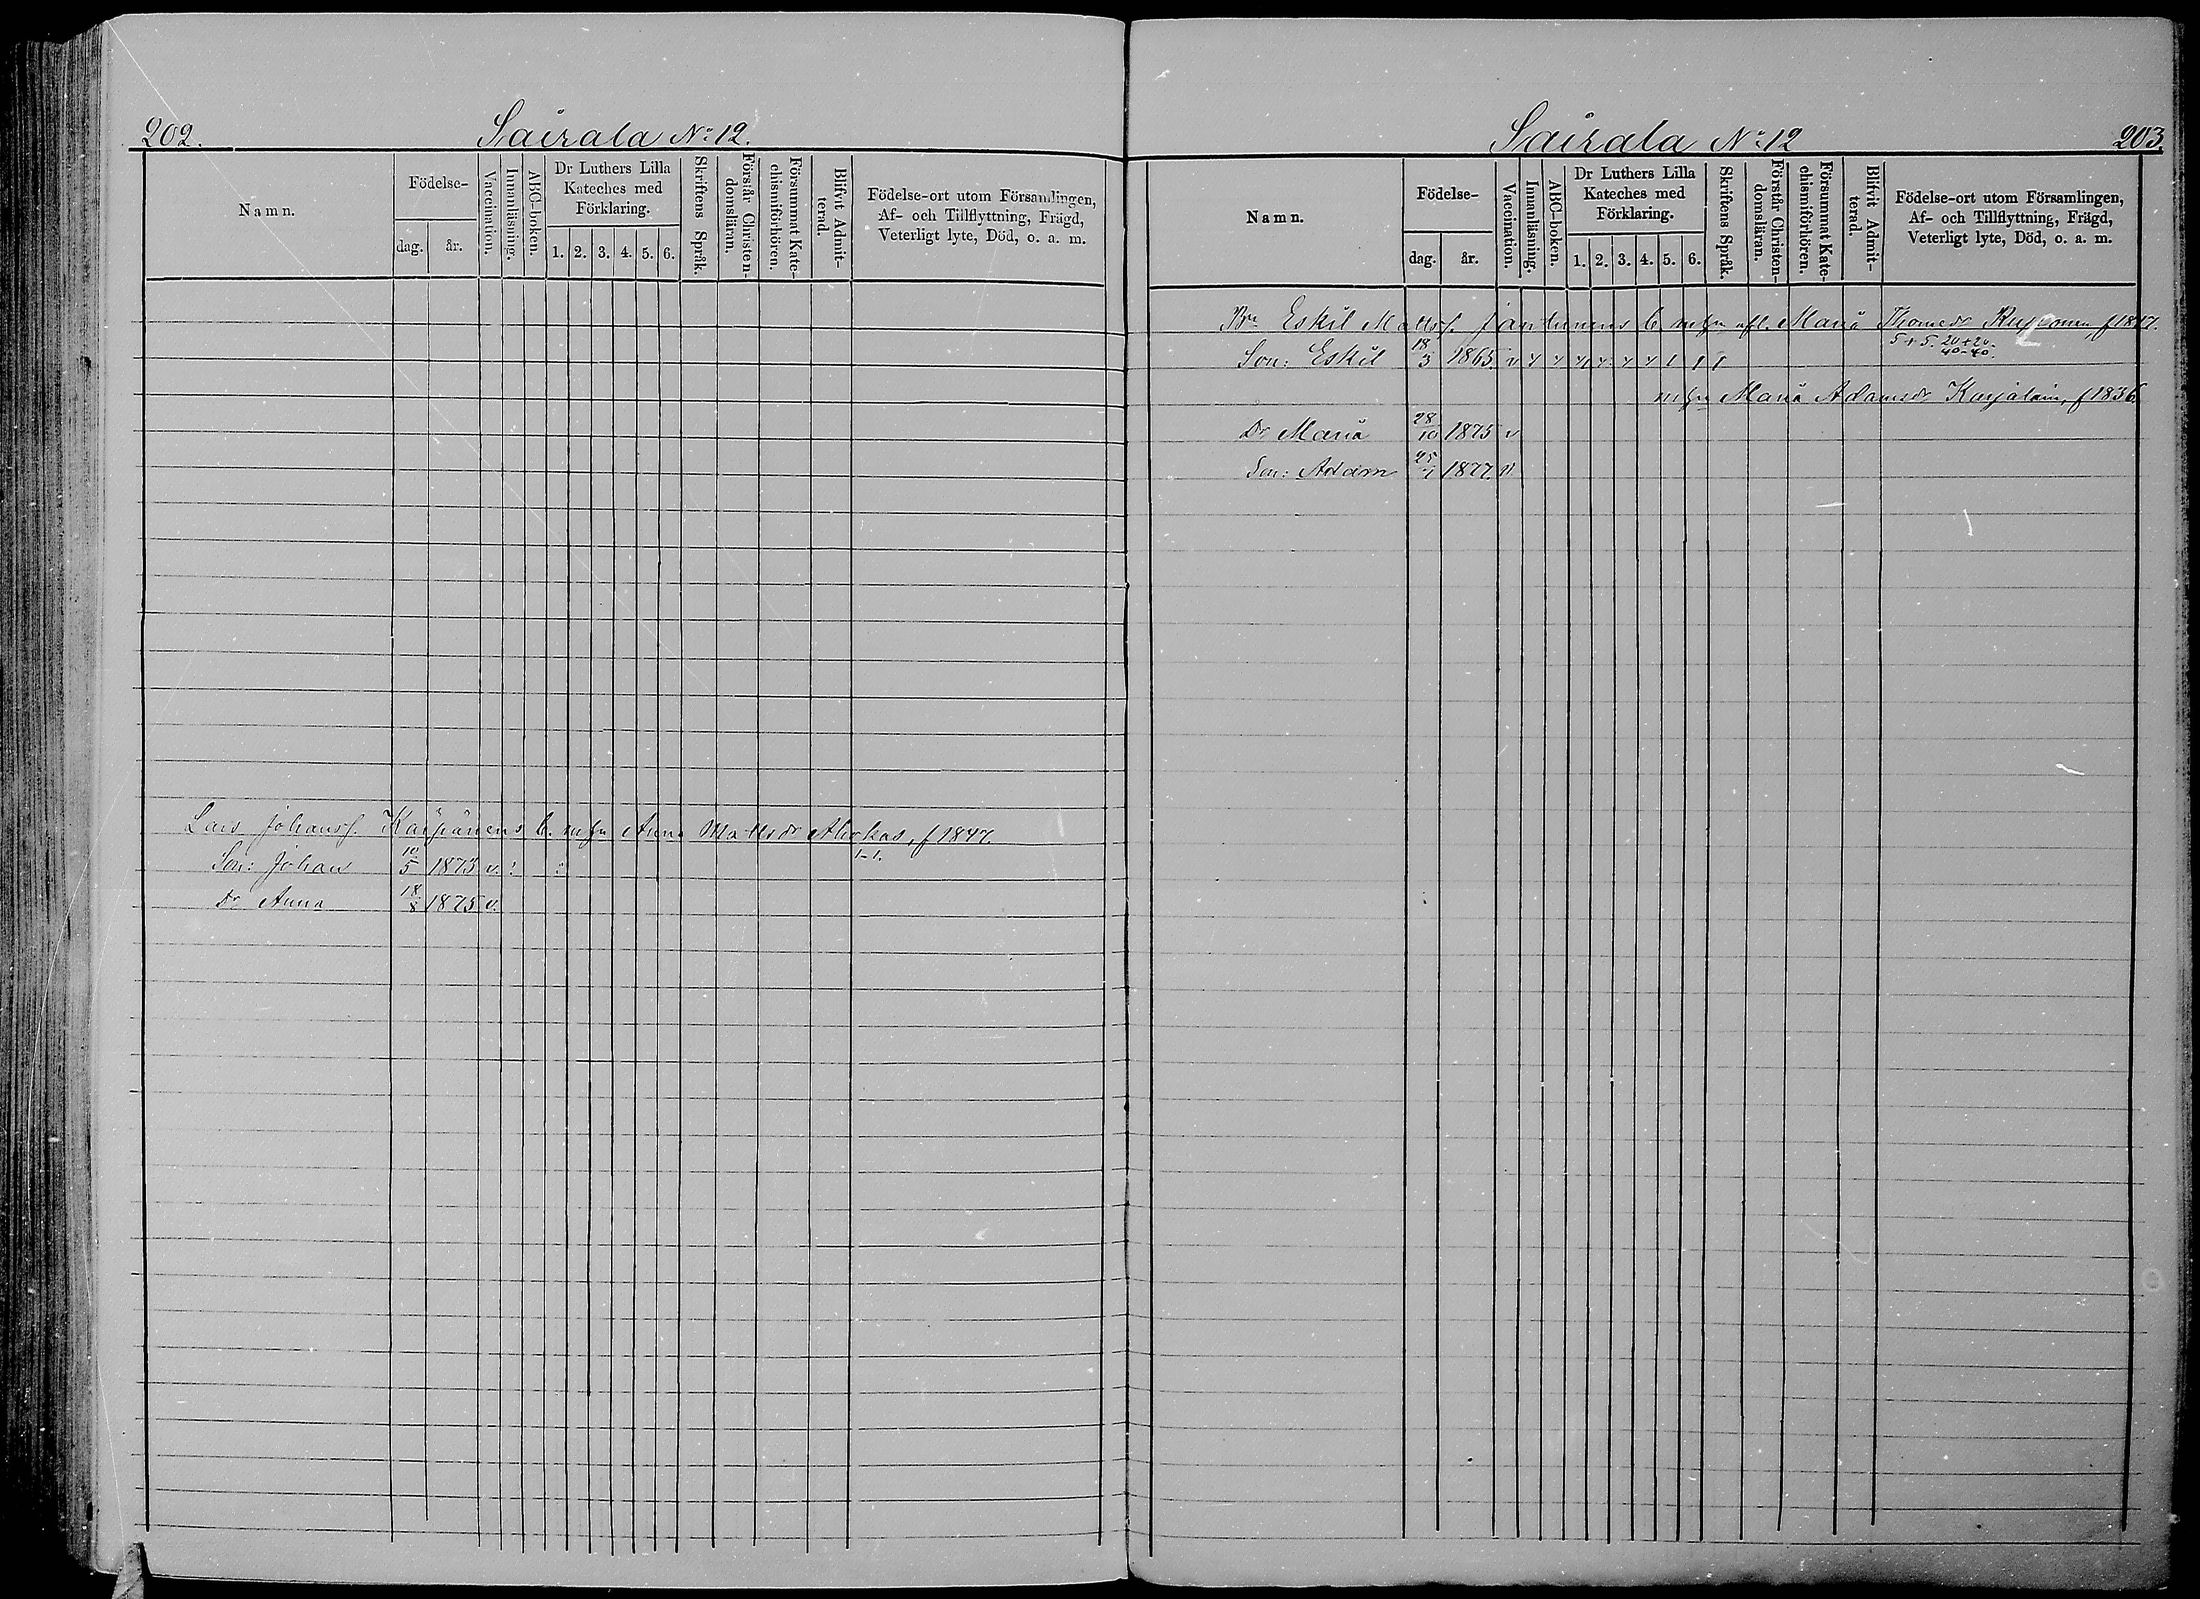 202.
Sairala No 12.
Namn.
Födelse-
dag.
år.
Vaccination.
Innanläsning.
ABC-boken.
Dr Luthers Lilla
Kateches med
Förklaring.
1. 2. 3. 4. 5. 6.
Skriftens Språk.
Förstår Christen-
domsläran.
Försummat Kate-
chismiförhören.
Blifvit Admit-
terad.
Födelse-ort utom Församlingen,
Af- och Tillflyttning, Frägd,
Veterligt lyte, Död, o. a. m.
Lars Johanss. b. m hu Anna Mattsdr f 1847.
1-1.
Son: Johan 10/5 1873 v. : :
Dr Anna 18/8 1875 v.
Sairala No 12
203.
Namn.
Födelse-
dag.
år.
Vaccination.
Innanläsning.
ABC-boken.
Dr Luthers Lilla
Kateches med
Förklaring.
1. 2. 3. 4. 5. 6.
Skriftens Språk.
Förstår Christen-
domsläran.
Försummat Kate-
chismiförhören.
Blifvit Admit-
terad.
Födelse-ort utom Församlingen,
Af- och Tillflyttning, Frägd,
Veterligt lyte, Död, o. a. m.
Eskil Mattss. Jantunens b. m hu afl. Maria Thomedr
5+5. 20+20.
40-40.
Son: Eskil 18/3 1865 v
m hu Maria Adamsdr Karjalain, f 1836.
Dr Maria 28/10 1875 v
Son: Adam 1877. v